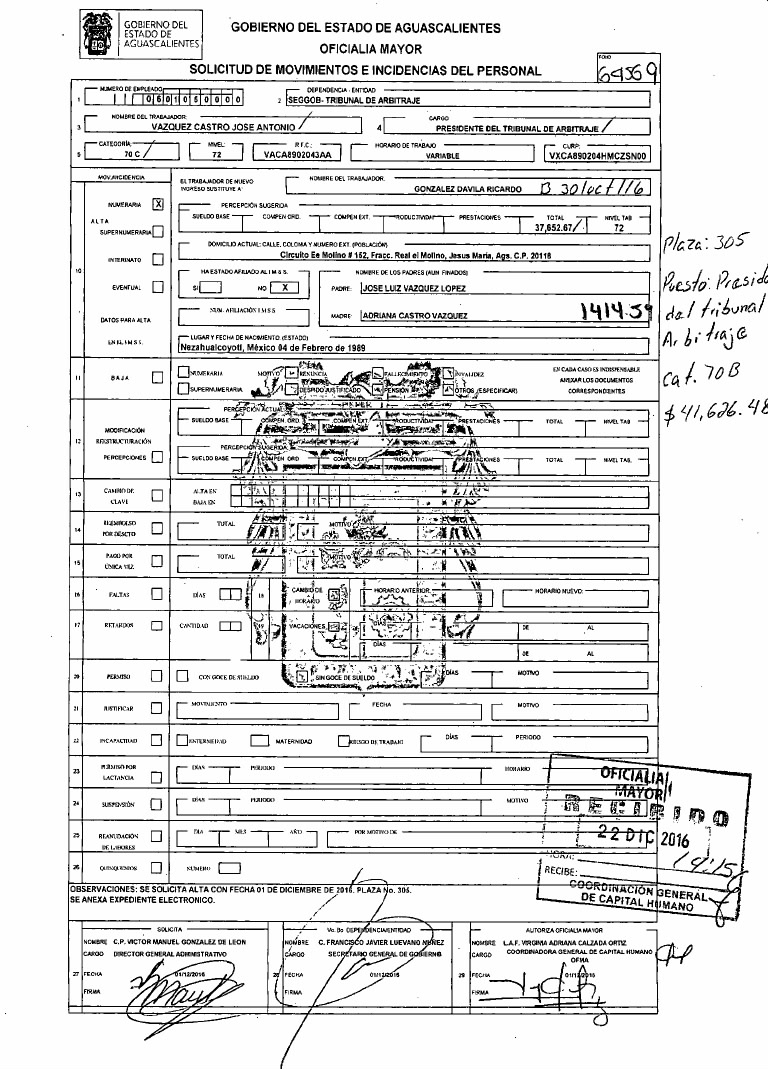 GOBIERNO DEL
ESTADO DE
AGUASCALIENTES
GOBIERNO DEL ESTADO DE AGUASCALIENTES
OFICIALIA MAYOR
SOLICITUD DE MOVIMIENTOS E INCIDENCIAS DEL PERSONAL
FOLIO
64569
1 NUMERO DE EMPLEADO 0601050000
2 DEPENDENCIA - ENTIDAD SEGGOB- TRIBUNAL DE ARBITRAJE
3 NOMBRE DEL TRABAJADOR: VAZQUEZ CASTRO JOSE ANTONIO
4 CARGO PRESIDENTE DEL TRIBUNAL DE ARBITRAJE
5 CATEGORÍA: 70 C NIVEL: 72 R.F.C.: VACA8902043AA HORARIO DE TRABAJO VARIABLE CURP: VXCA890204HMCZSN00
MOV./INCIDENCIA
EL TRABAJADOR DE NUEVO INGRESO SUSTITUYE A: NOMBRE DEL TRABAJADOR: GONZALEZ DAVILA RICARDO B 30/oct/16
10 ALTA
NUMERARIA X
SUPERNUMERARIA
INTERINATO
EVENTUAL
DATOS PARA ALTA
EN EL I.M.S.S.
PERCEPCIÓN SUGERIDA
SUELDO BASE COMPEN ORD. COMPEN EXT. PRODUCTIVIDAD PRESTACIONES TOTAL NIVEL TAB
37,652.67 72
DOMICILIO ACTUAL: CALLE, COLONIA Y NUMERO EXT. (POBLACIÓN)
Circuito Ee Molino # 152, Fracc. Real el Molino, Jesus Maria, Ags. C.P. 20118
HA ESTADO AFILIADO AL I.M.S.S. SI NO X
NOMBRE DE LOS PADRES (AUN FINADOS)
PADRE: JOSE LUIZ VAZQUEZ LOPEZ
NUM. AFILIACIÓN I.M.S.S
MADRE: ADRIANA CASTRO VAZQUEZ
1414.59
LUGAR Y FECHA DE NACIMIENTO: (ESTADO)
Nezahualcoyotl, México 04 de Febrero de 1989
Plaza: 305
Puesto: Preside
del tribunal
Arbitraje
Cat. 70B
$41,626.48
11 BAJA NUMERARIA MOTIVO RENUNCIA FALLECIMIENTO INVALIDEZ
SUPERNUMERARIA DESPIDO JUSTIFICADO PENSIÓN OTROS (ESPECIFICAR)
EN CADA CASO ES INDISPENSABLE
ANEXAR LOS DOCUMENTOS
CORRESPONDIENTES
12 MODIFICACIÓN
REESTRUCTURACIÓN
PERCEPCIONES
PERCEPCIÓN ACTUAL
SUELDO BASE COMPEN ORD. COMPEN EXT. PRODUCTIVIDAD PRESTACIONES TOTAL NIVEL TAB
PERCEPCIÓN SUGERIDA
SUELDO BASE COMPEN ORD. COMPEN EXT. PRODUCTIVIDAD PRESTACIONES TOTAL NIVEL TAB.
13 CAMBIO DE
CLAVE
ALTA EN
BAJA EN
14 REEMBOLSO
POR DESCTO TOTAL MOTIVO
15 PAGO POR
ÚNICA VEZ. TOTAL MOTIVO
16 FALTAS DÍAS 18 CAMBIO DE
HORARIO HORARIO ANTERIOR: HORARIO NUEVO:
17 RETARDOS CANTIDAD 19 VACACIONES DÍAS DE AL
DÍAS DE AL
20 PERMISO CON GOCE DE SUELDO SIN GOCE DE SUELDO DÍAS MOTIVO
21 JUSTIFICAR MOVIMIENTO FECHA MOTIVO
22 INCAPACIDAD ENFERMEDAD MATERNIDAD RIESGO DE TRABAJO DÍAS PERIODO
23 PERMISO POR
LACTANCIA DÍAS PERIODO HORARIO
24 SUSPENSIÓN DÍAS PERIODO MOTIVO
25 REANUDACIÓN
DE LABORES DIA MES AÑO POR MOTIVO DE
26 QUINQUENIOS NUMERO
OFICIALIA
MAYOR
RECIBIDO
22 DIC 2016
HORA: 14:15
RECIBE:
COORDINACIÓN GENERAL
DE CAPITAL HUMANO
OBSERVACIONES: SE SOLICITA ALTA CON FECHA 01 DE DICIEMBRE DE 2016. PLAZA No. 305.
SE ANEXA EXPEDIENTE ELECTRONICO.
SOLICITA
NOMBRE C.P. VICTOR MANUEL GONZALEZ DE LEON
CARGO DIRECTOR GENERAL ADMINISTRATIVO
27 FECHA 01/12/2016
FIRMA
Vo. Bo. DEPENDENCIA/ENTIDAD
NOMBRE C. FRANCISCO JAVIER LUEVANO NUÑEZ
CARGO SECRETARIO GENERAL DE GOBIERNO
28 FECHA 01/12/2016
FIRMA
AUTORIZA OFICIALIA MAYOR
NOMBRE L.A.F. VIRGINIA ADRIANA CALZADA ORTIZ
CARGO COORDINADORA GENERAL DE CAPITAL HUMANO
OFMA
29 FECHA 01/12/2016
FIRMA